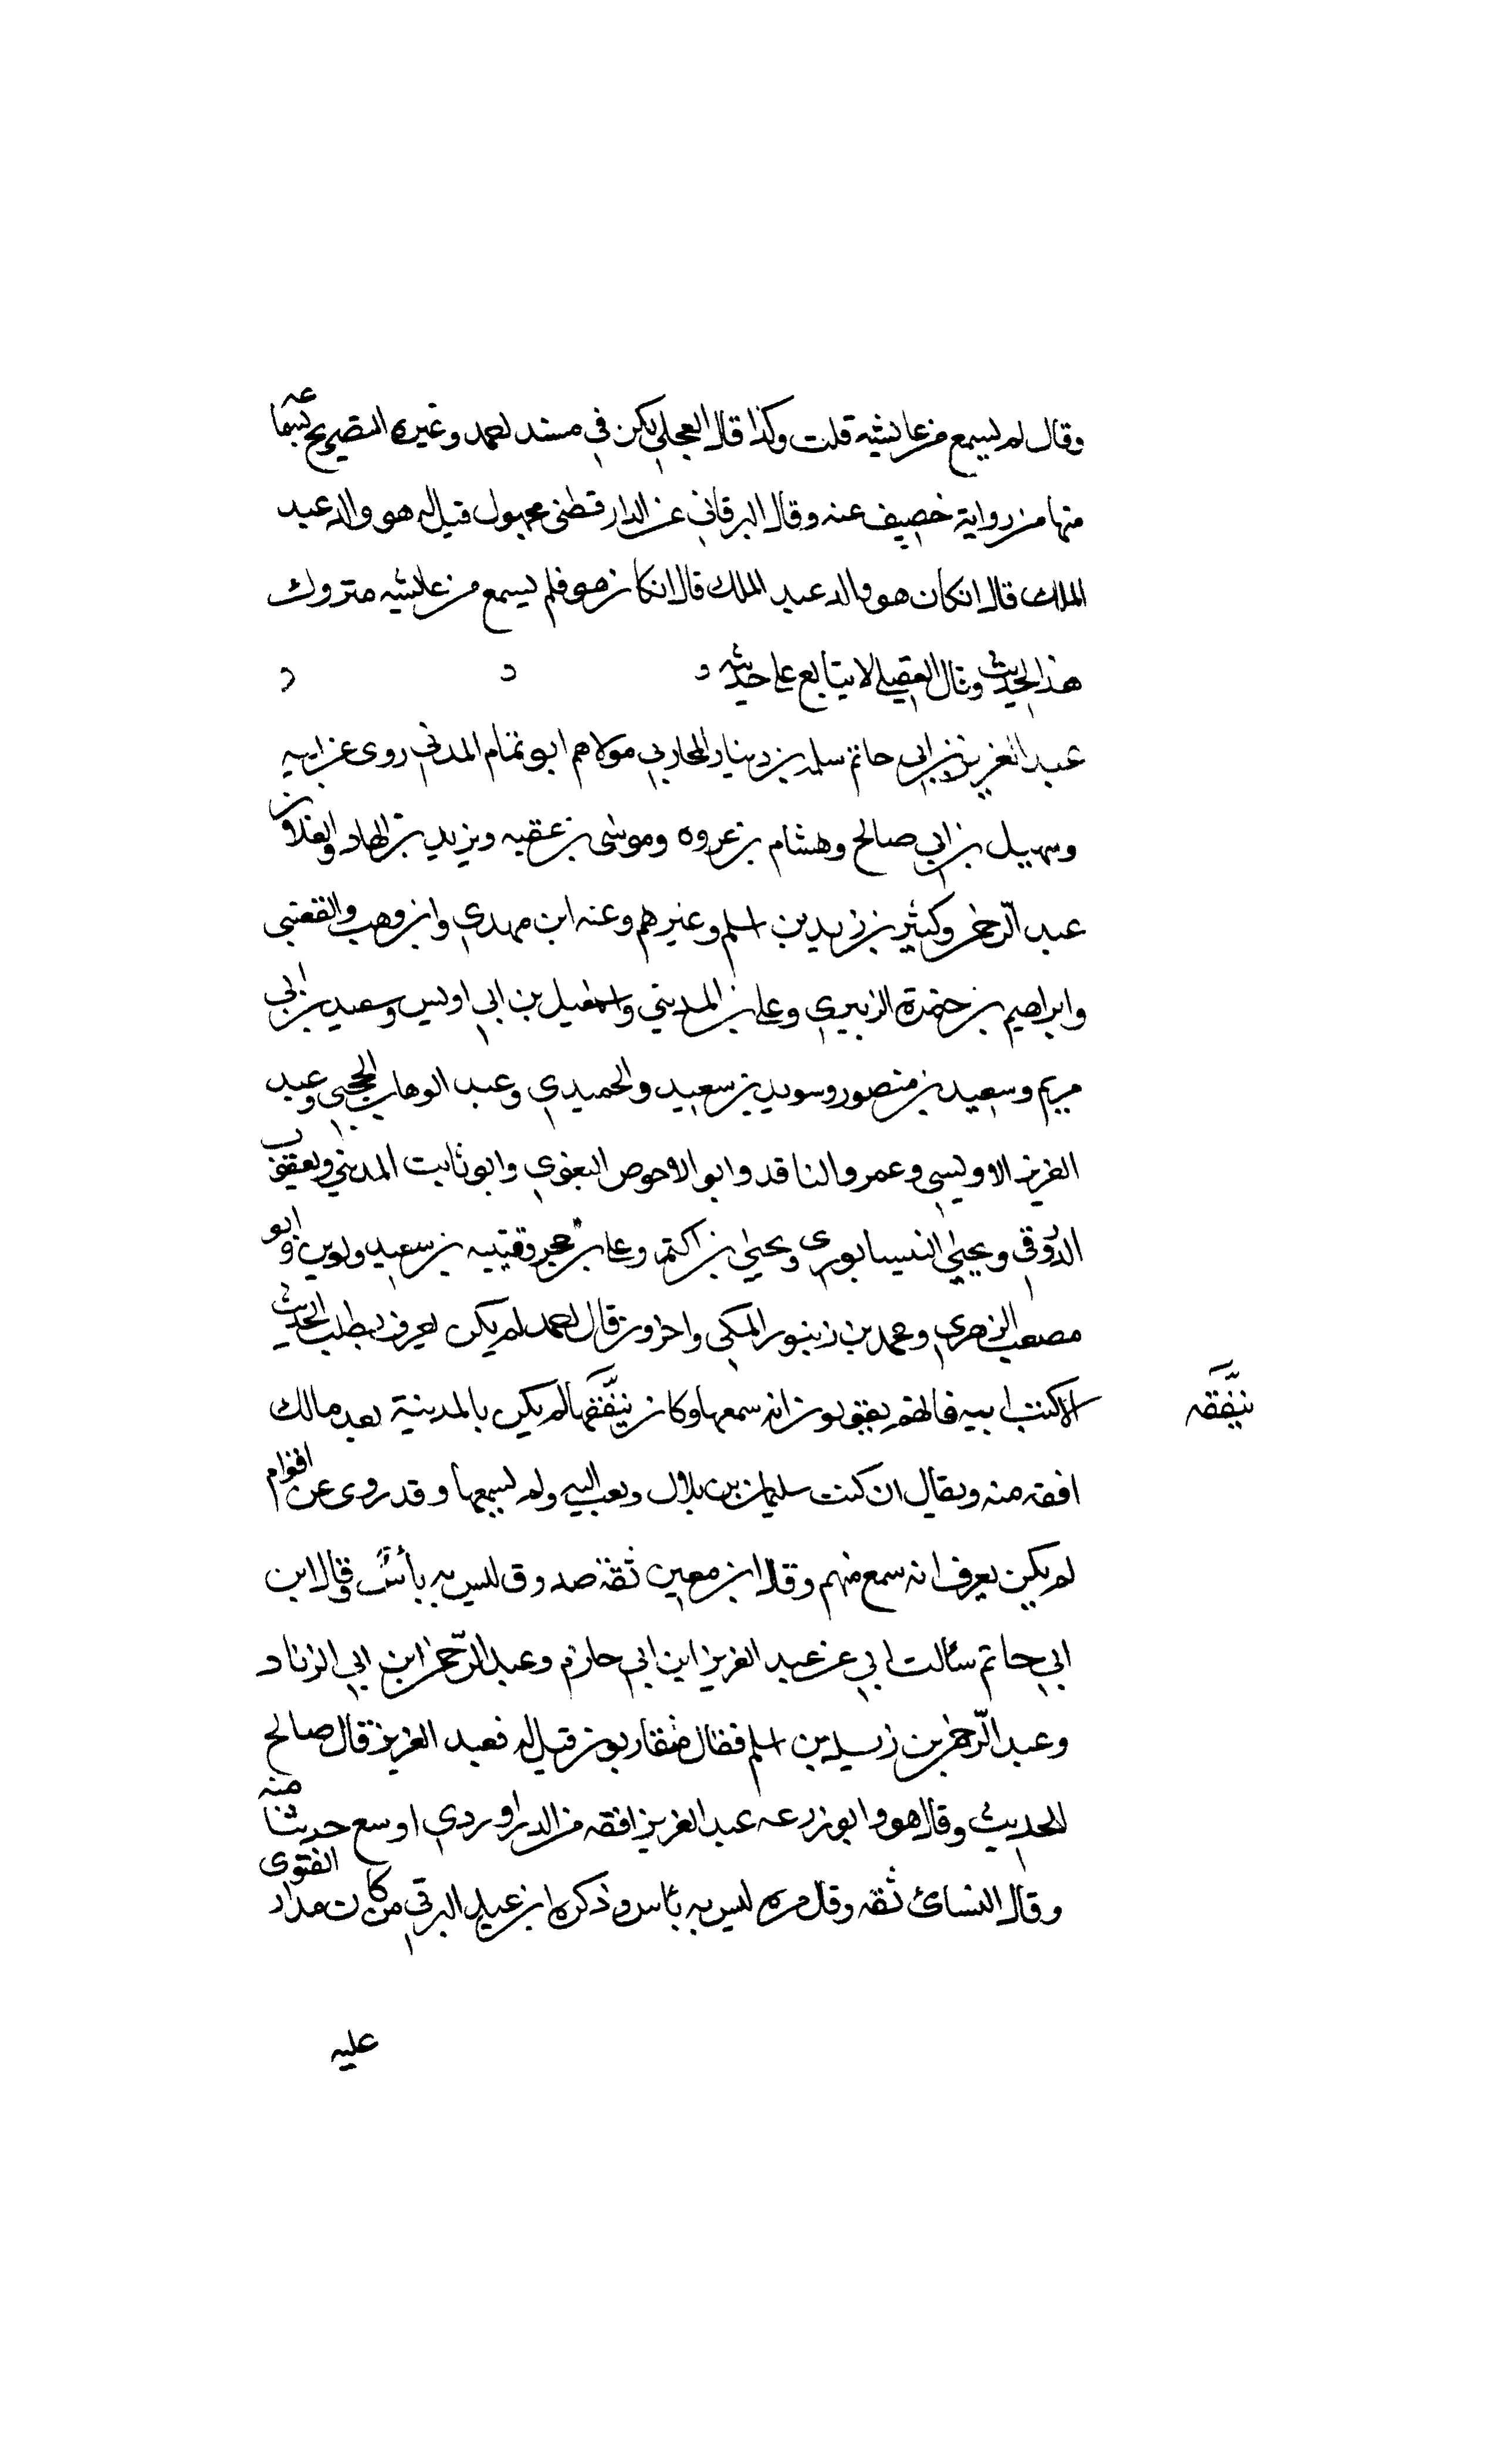 وقال لم يسمع من عائشه قلت وكذا قال العجلي لكن في مسند احمد وغيره التصريح بسماعه
منها من رواية خصيف عنه وقال البرقاني عن الدارقطني مجهول قيل له هو والد عبد
الملك قال انكان هو والد عبد الملك قال انكان هو فلم يسمع من عائشه متروك
هذا الحديث وقال العقيلي لا يتابع على حديثه د د د
عبد العزيز بن ابي حاتم سلمه بن دينار المحاربي مولاهم ابو تمام المدني روى عن ابيه
وسهيل بن ابي صالح وهشام بن عروه وموسى بن عقبه ويزيد بن الهاد والعلا بن
عبد الرحمن وكثير بن زيد بن اسلم وغيرهم وعنه ابن مهدي وابن وهب والقعنبي
وابراهيم بن حمزة الزبيري وعلي بن المديني واسمعيل بن ابي اويس وسعيد بن ابي
مريم وسعيد بن منصور وسويد بن سعيد والحميدي وعبد الوهاب الحجبي وعبد
العزيز الاويسي وعمرو الناقد وابو الاحوص البغوي وابو ثابت المديني ويعقوب
الدورقي ويحيى النيسابوري ويحيى بن اكثم وعلي بن حجر وقتيبه بن سعيد ولوين وابو
مصعب الزهري ومحمد بن زنبور المكي واخرون قال احمد لم يكن يعرف بطلب الحديث
الا كتب ابيه فانهم يقولون انه سمعها وكان يتفقه لم يكن بالمدينة بعد مالك
يتفقه
افقه منه ويقال ان كتب سليمان بن بلال وقعت اليه ولم يسمعها وقد روى عن اقوام
لم يكن يعرف انه سمع منهم وقال ابن معين ثقة صدوق ليس به بأس وقال ابن
ابي حاتم سألت ابي عن عبد العزيز ابن ابي حازم وعبد الرحمن ابن ابي الزناد
وعبد الرحمن بن زيد بن اسلم فقال متقاربون قيل له فعبد العزيز قال صالح
الحديث وقال هو وابو زرعه عبد العزيز افقه من الدراوردي اوسع حديثا منه
وقال النسائ ثقه وقال مره ليس به بأس وذكره ابن عبد البر في من كانت مدار الفتوى
عليه